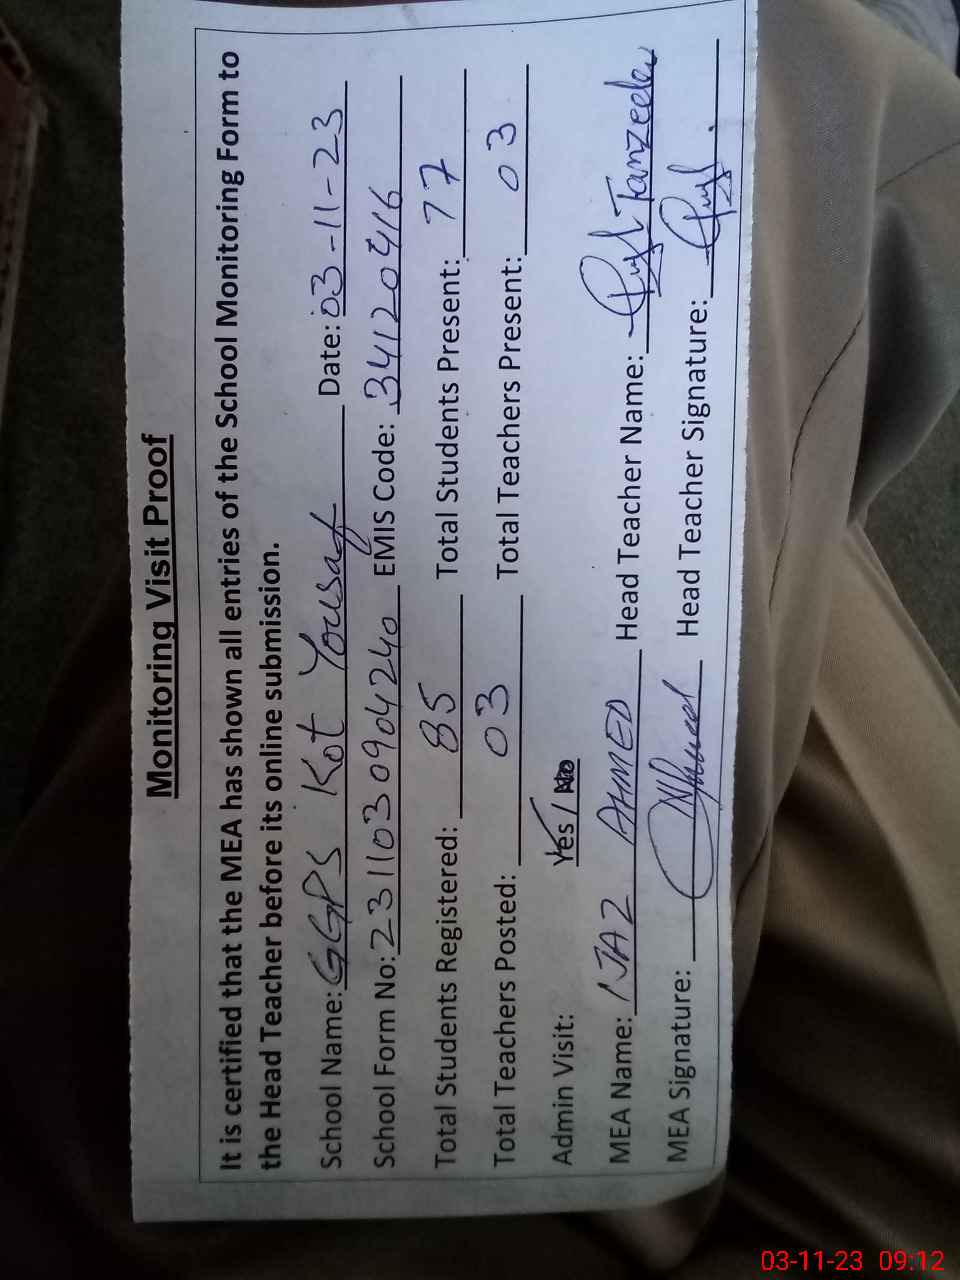 Monitoring Visit Proof
It is certified that the MEA has shown all entries of the School Monitoring Form to
the Head Teacher before its online submission.
School Name: GGPS Kot Yousaf Date: 03-11-23
School Form No: 231103090424o EMIS Code: 34120416
Total Students Registered: 85 Total Students Present: 77
Total Teachers Posted: 03 Total Teachers Present: 03
Admin Visit: Yes / No
MEA Name: IJAZ AHMED Head Teacher Name: Tanzeela
MEA Signature: Head Teacher Signature:
03-11-23 09:12